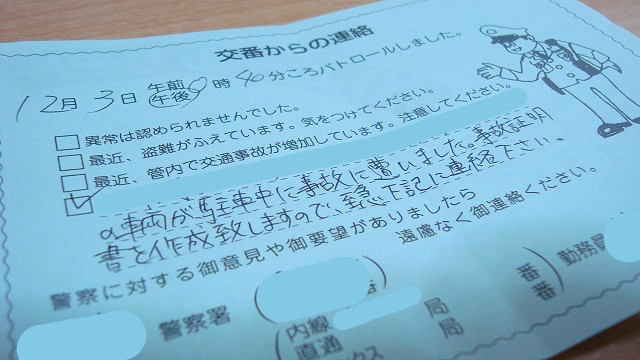 交番からの連絡
12月3日 午前 午後 9時40分ころパトロールしました。
異常は認められませんでした。
最近、盗難がふえています。気をつけてください。
最近、管内で交通事故が増加しています。注意してください。
の車輌が駐車中に事故に遭いました。事故証明
書を作成致しますので、至急下記に連絡下さい。
警察に対する御意見や御要望がありましたら
遠慮なく御連絡ください。
警察署
内線 局 番
直通 局 番
勤務員